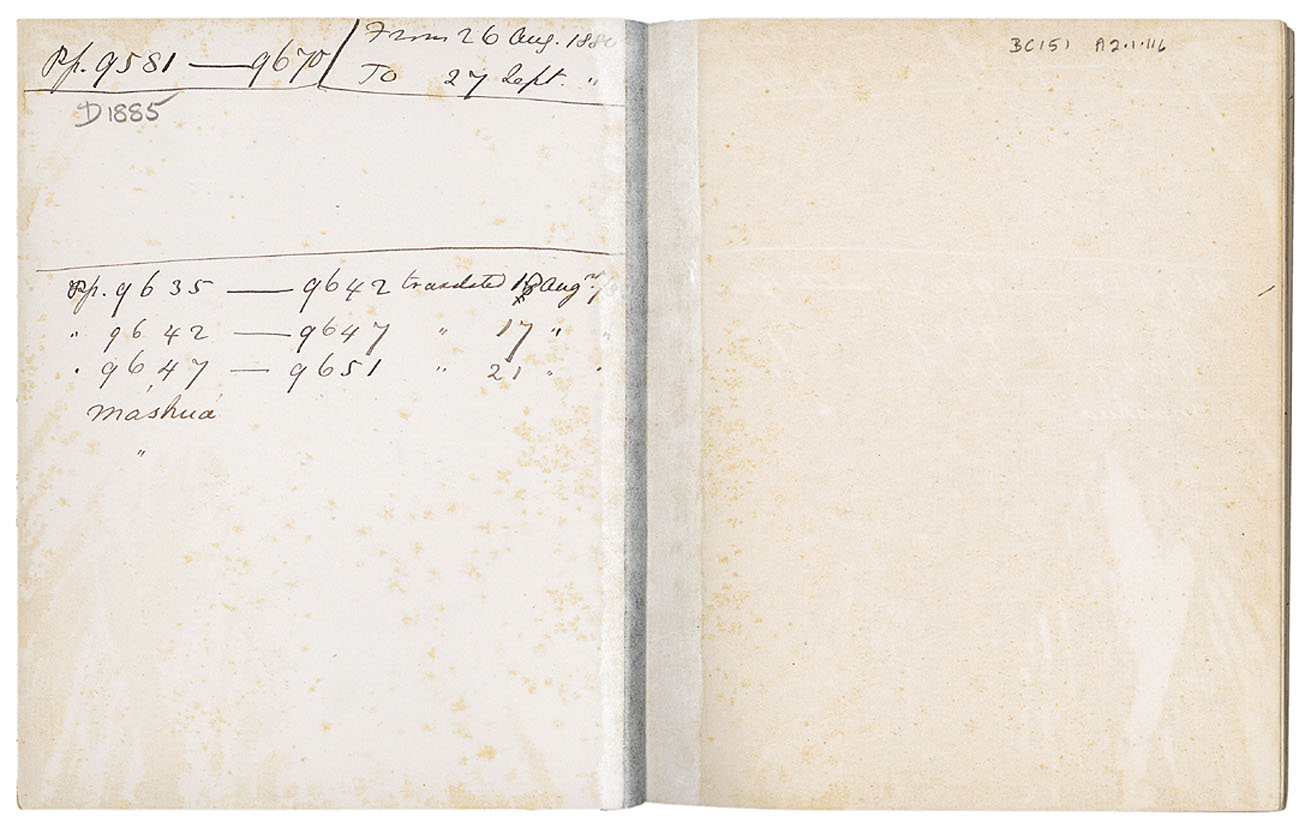 Pp. 9581 — 9670
From 26 Aug.
To 27 Sept. "
D1885
Pp. 9635 — 9642 translated Aug
" 9642 — 9647 " 17 " "
" 9647 — 9651 " 21 " "
máshuá
"
BC151 A2.1.116